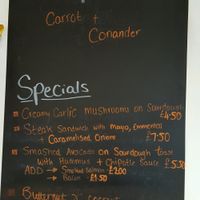 Carrot +
Coriander
Specials
Creamy Garlic mushrooms on Sourdough
£4.50
Steak Sandwich with Mayo, Emmental
+ Caramelised Onions £7.50
Smashed Avocado on Sourdough toast
with Hummus + Chipotle Sauce £5.50
ADD → Smoked Salmon £2.00
→ Bacon £1.50
Butternut